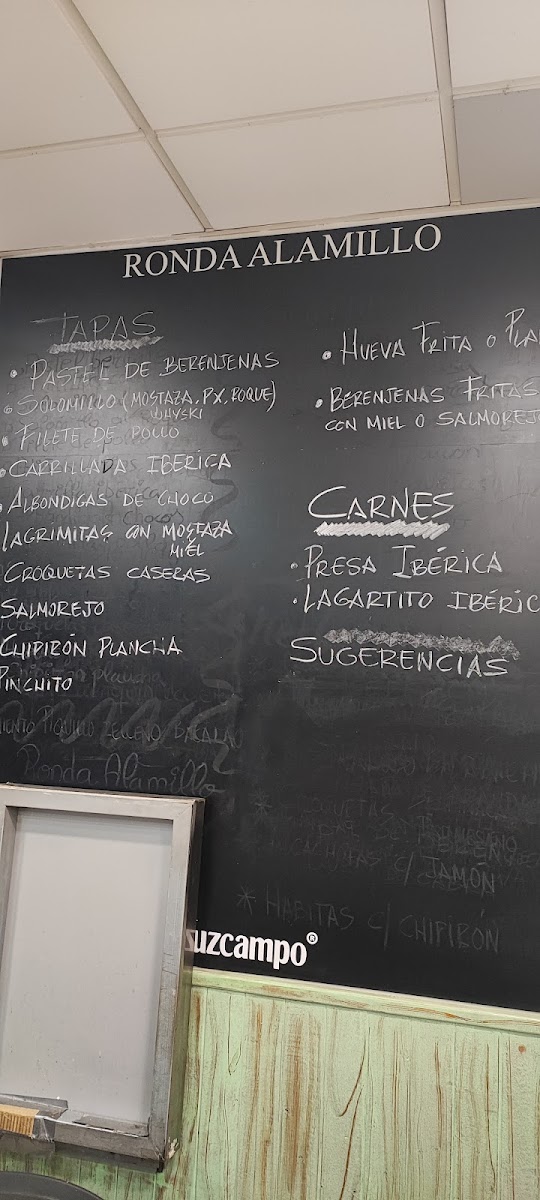 RONDA ALAMILLO
TAPAS
• PASTEL DE BERENJENAS
• SOLOMILLO (MOSTAZA, PX, ROQUE)
WHYSKI
• FILETE DE POLLO
• CARRILLADA IBERICA
• ALBONDIGAS DE CHOCO
LAGRIMITAS CON MOSTAZA
MIEL
CROQUETAS CASERAS
SALMOREJO
CHIPIRÓN PLANCHA
PINCHITO
PIQUILLO RELLENO BACALAO
Ronda Alamillo
• HUEVA FRITA O PLA
• BERENJENAS FRITAS
CON MIEL O SALMOREJO
CARNES
• PRESA IBÉRICA
• LAGARTITO IBÉRIC
SUGERENCIAS
C/ JAMÓN
* HABITAS C/ CHIPIRÓN
uzcampo®